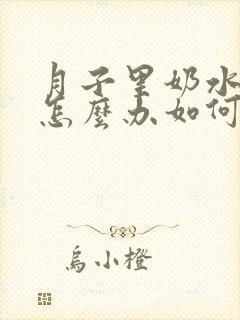 月子里奶水
怎麼办如何
烏小橙